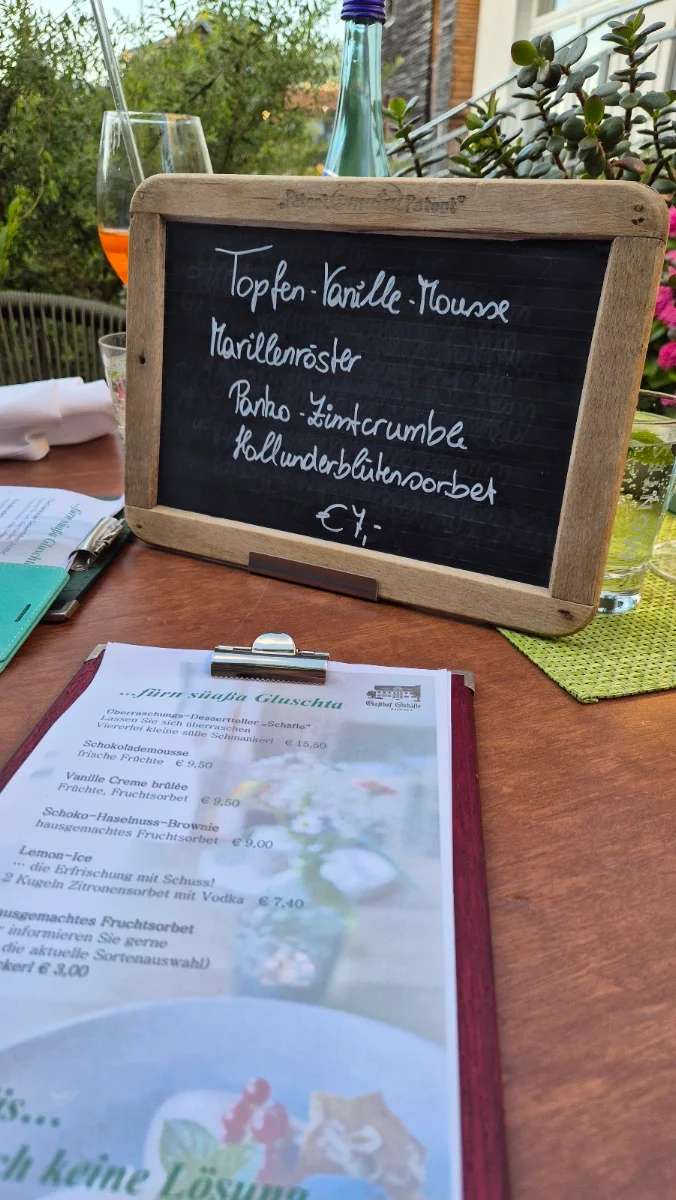 Topfen-Vanille-Mousse
Marillenröster
Panko-Zimtcrumble
Hollunderblütensorbet
€7,-
...fürn süaßa Gluschta
Gasthof Schäfle
Überraschungs-Dessertteller „Schäfle"
Lassen Sie sich überraschen
Viererlei kleine süße Schmankerl € 15,50
Schokolademousse
frische Früchte € 9,50
Vanille Creme brûlée
Früchte, Fruchtsorbet € 9,50
Schoko-Haselnuss-Brownie
hausgemachtes Fruchtsorbet € 9,00
Lemon-Ice
... die Erfrischung mit Schuss!
2 Kugeln Zitronensorbet mit Vodka € 7,40
ausgemachtes Fruchtsorbet
r informieren Sie gerne
die aktuelle Sortenauswahl)
ckerl € 3,00
is...
ch keine Lösung